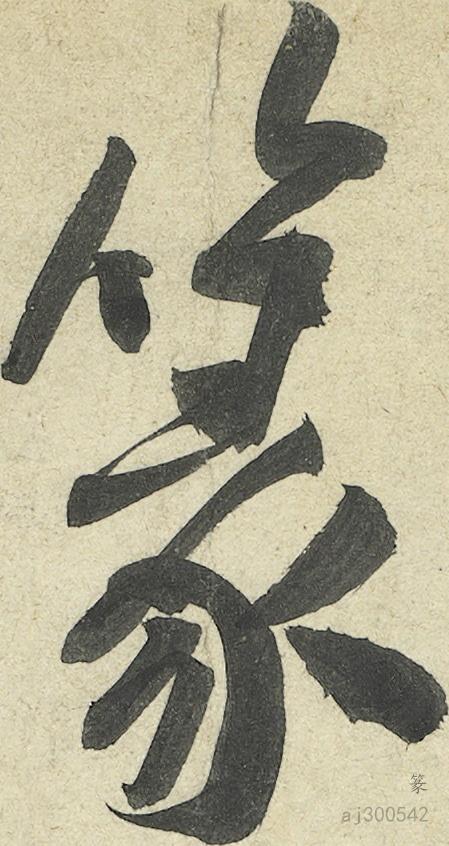 篆
篆
aj300542